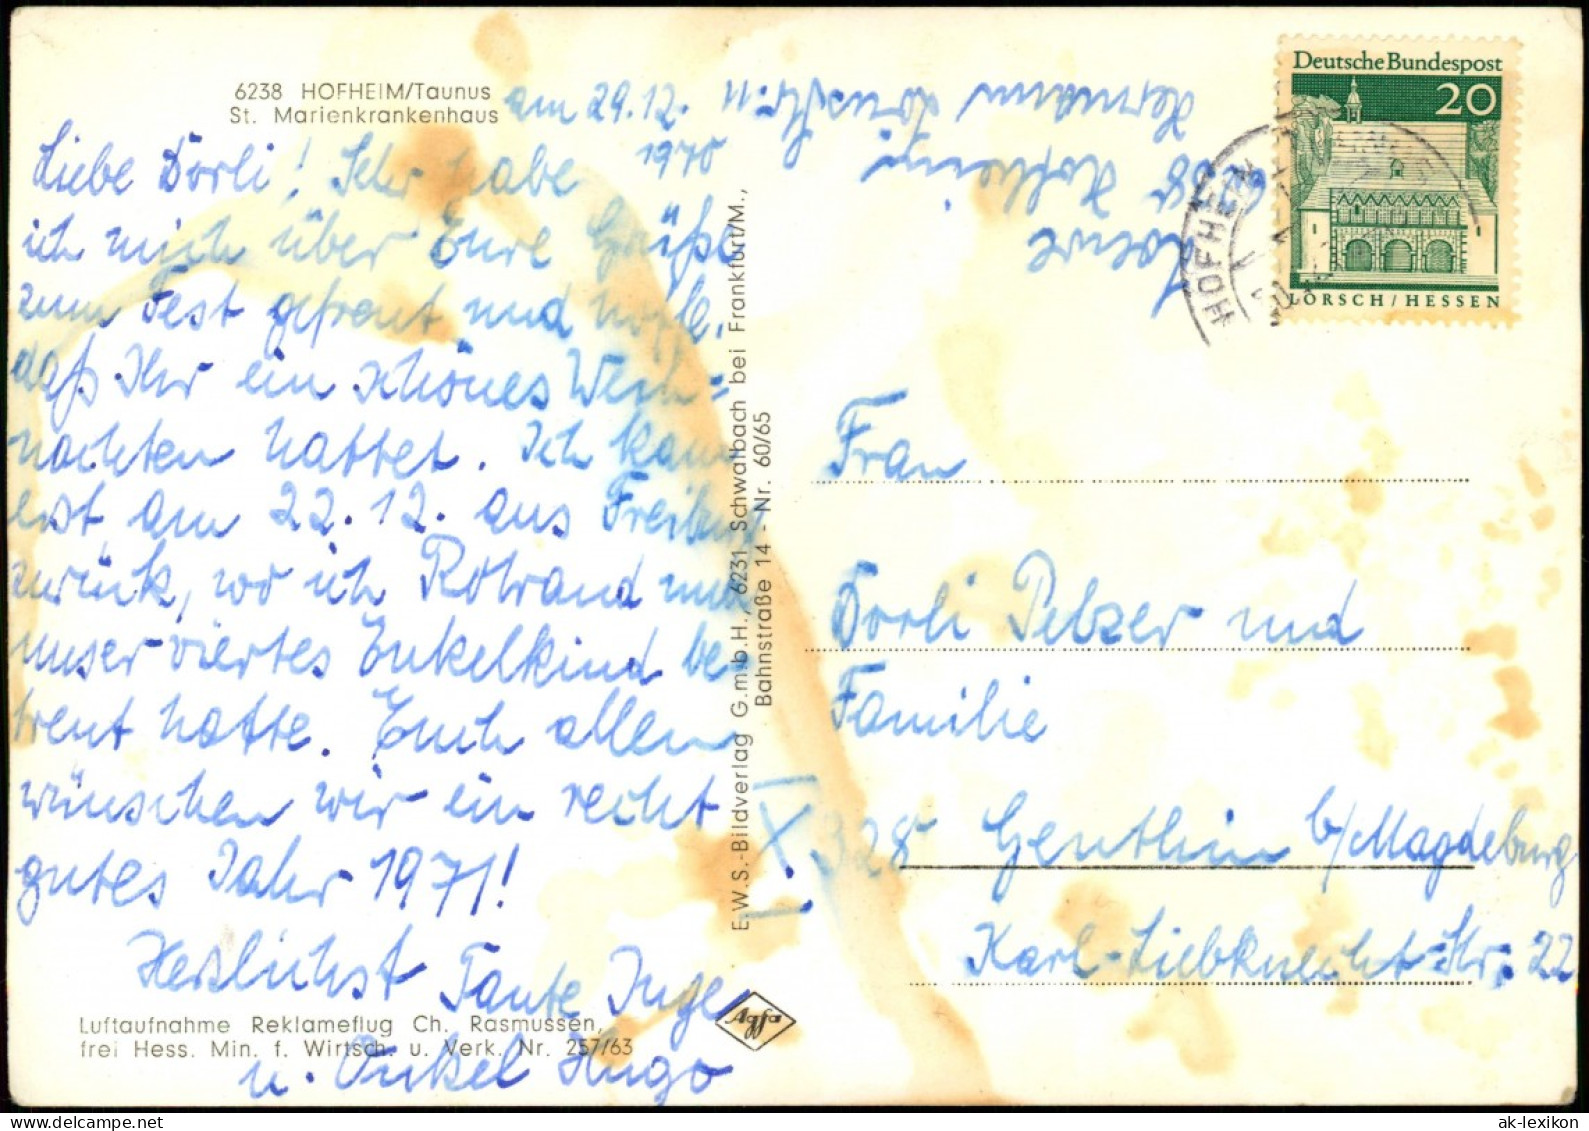 6238 HOFHEIM/Taunus
St. Marienkrankenhaus
am 29.12.
1970
Liebe Dorli! Sehr habe
ich mich über Eure Grüße
zum Fest gefreut und hoffe,
daß Ihr ein schönes Weih=
nachten hattet. Ich kam
erst am 22.12. aus Freiburg
zurück, wo ich Rotraud und
unser viertes Enkelkind be-
treut hatte. Euch allen
wünschen wir ein recht
gutes Jahr 1971!
Herzlichst Tante Inge
u. Onkel Hugo
Luftaufnahme Reklameflug Ch. Rasmussen,
frei Hess. Min. f. Wirtsch. u. Verk. Nr. 257/63
E.W.S.-Bildverlag G.m.b.H., 6231 Schwalbach bei Frankfurt/M.,
Bahnstraße 14 - Nr. 60/65
Agfa
6238 Hofheim
Deutsche Bundespost
20
LORSCH/HESSEN
HOFHEIM
Frau
Dorli Pelzer und
Familie
X 328 Genthin b/Magdeburg
Karl-Liebknecht-Str. 22
ak-lexikon